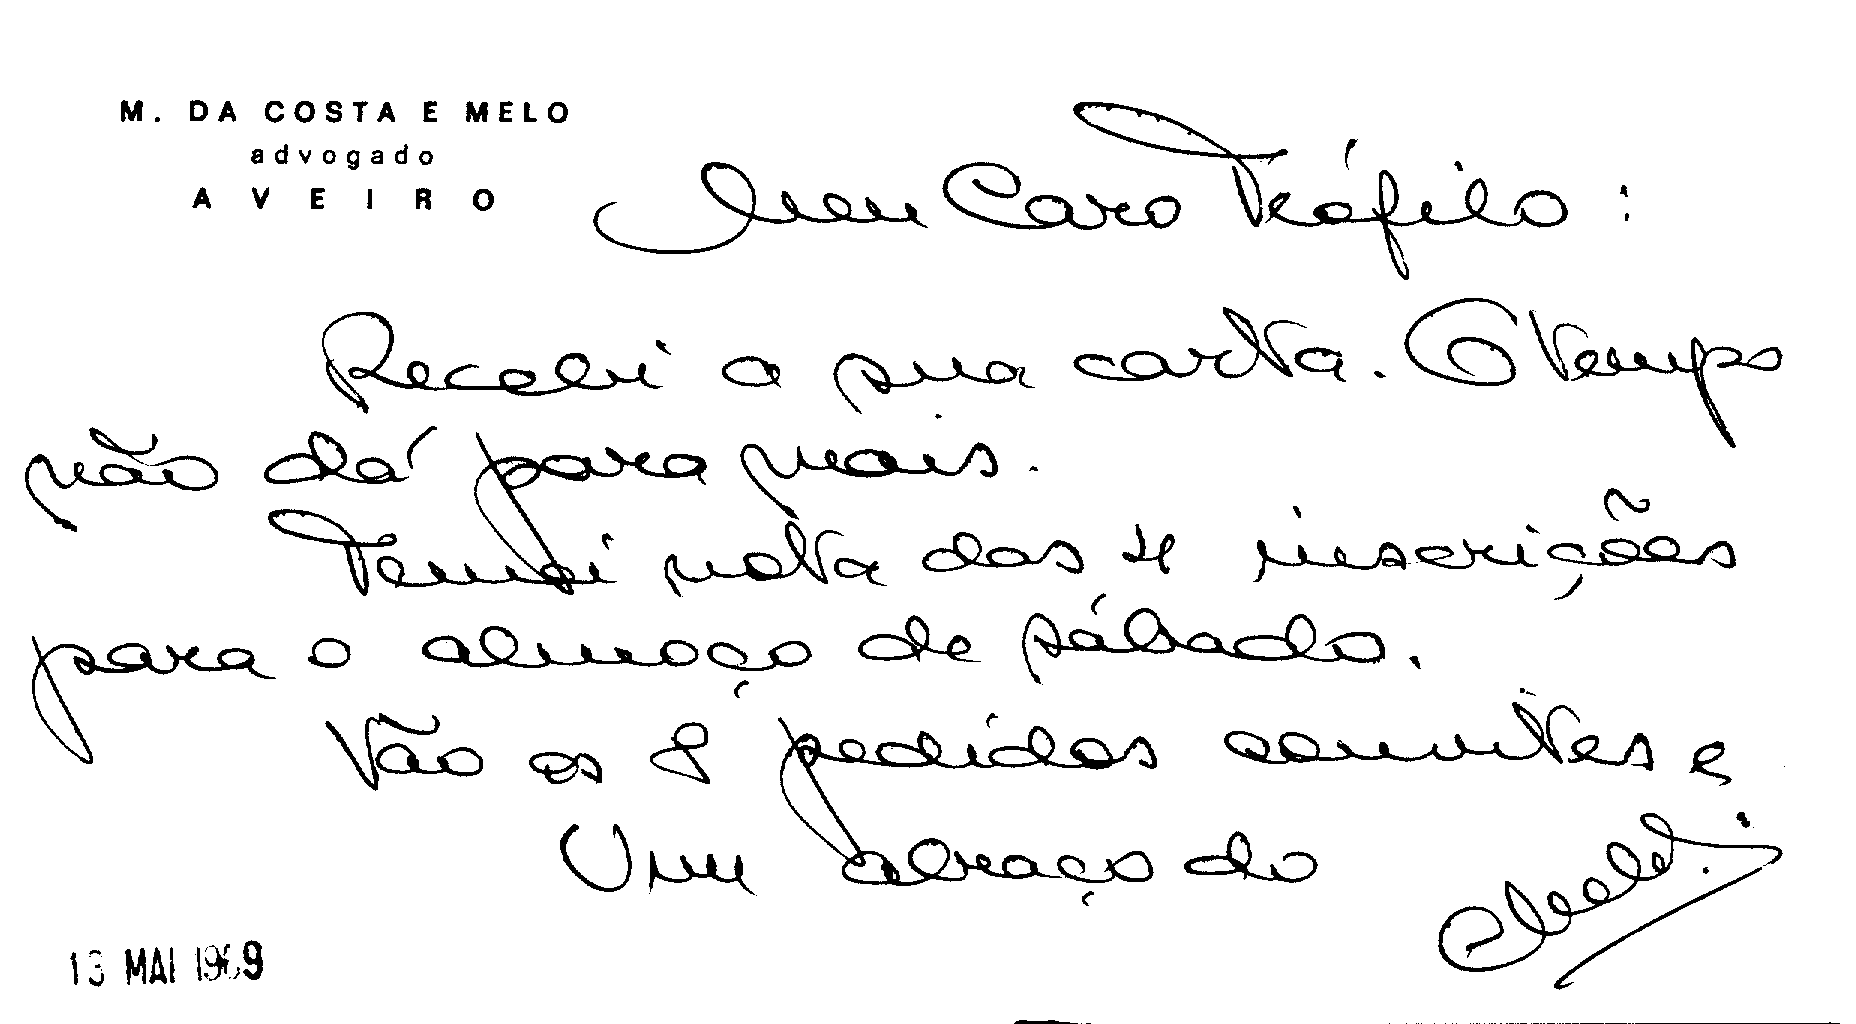 M. DA COSTA E MELO
advogado
AVEIRO
Meu Caro Teófilo:
Recebi a sua carta. O tempo
não dá para mais.
Tomei nota das 4 inscrições
para o almoço de sábado.
Vão os 8 pedidos convites e
Um abraço do
Melo
13 MAI 1969